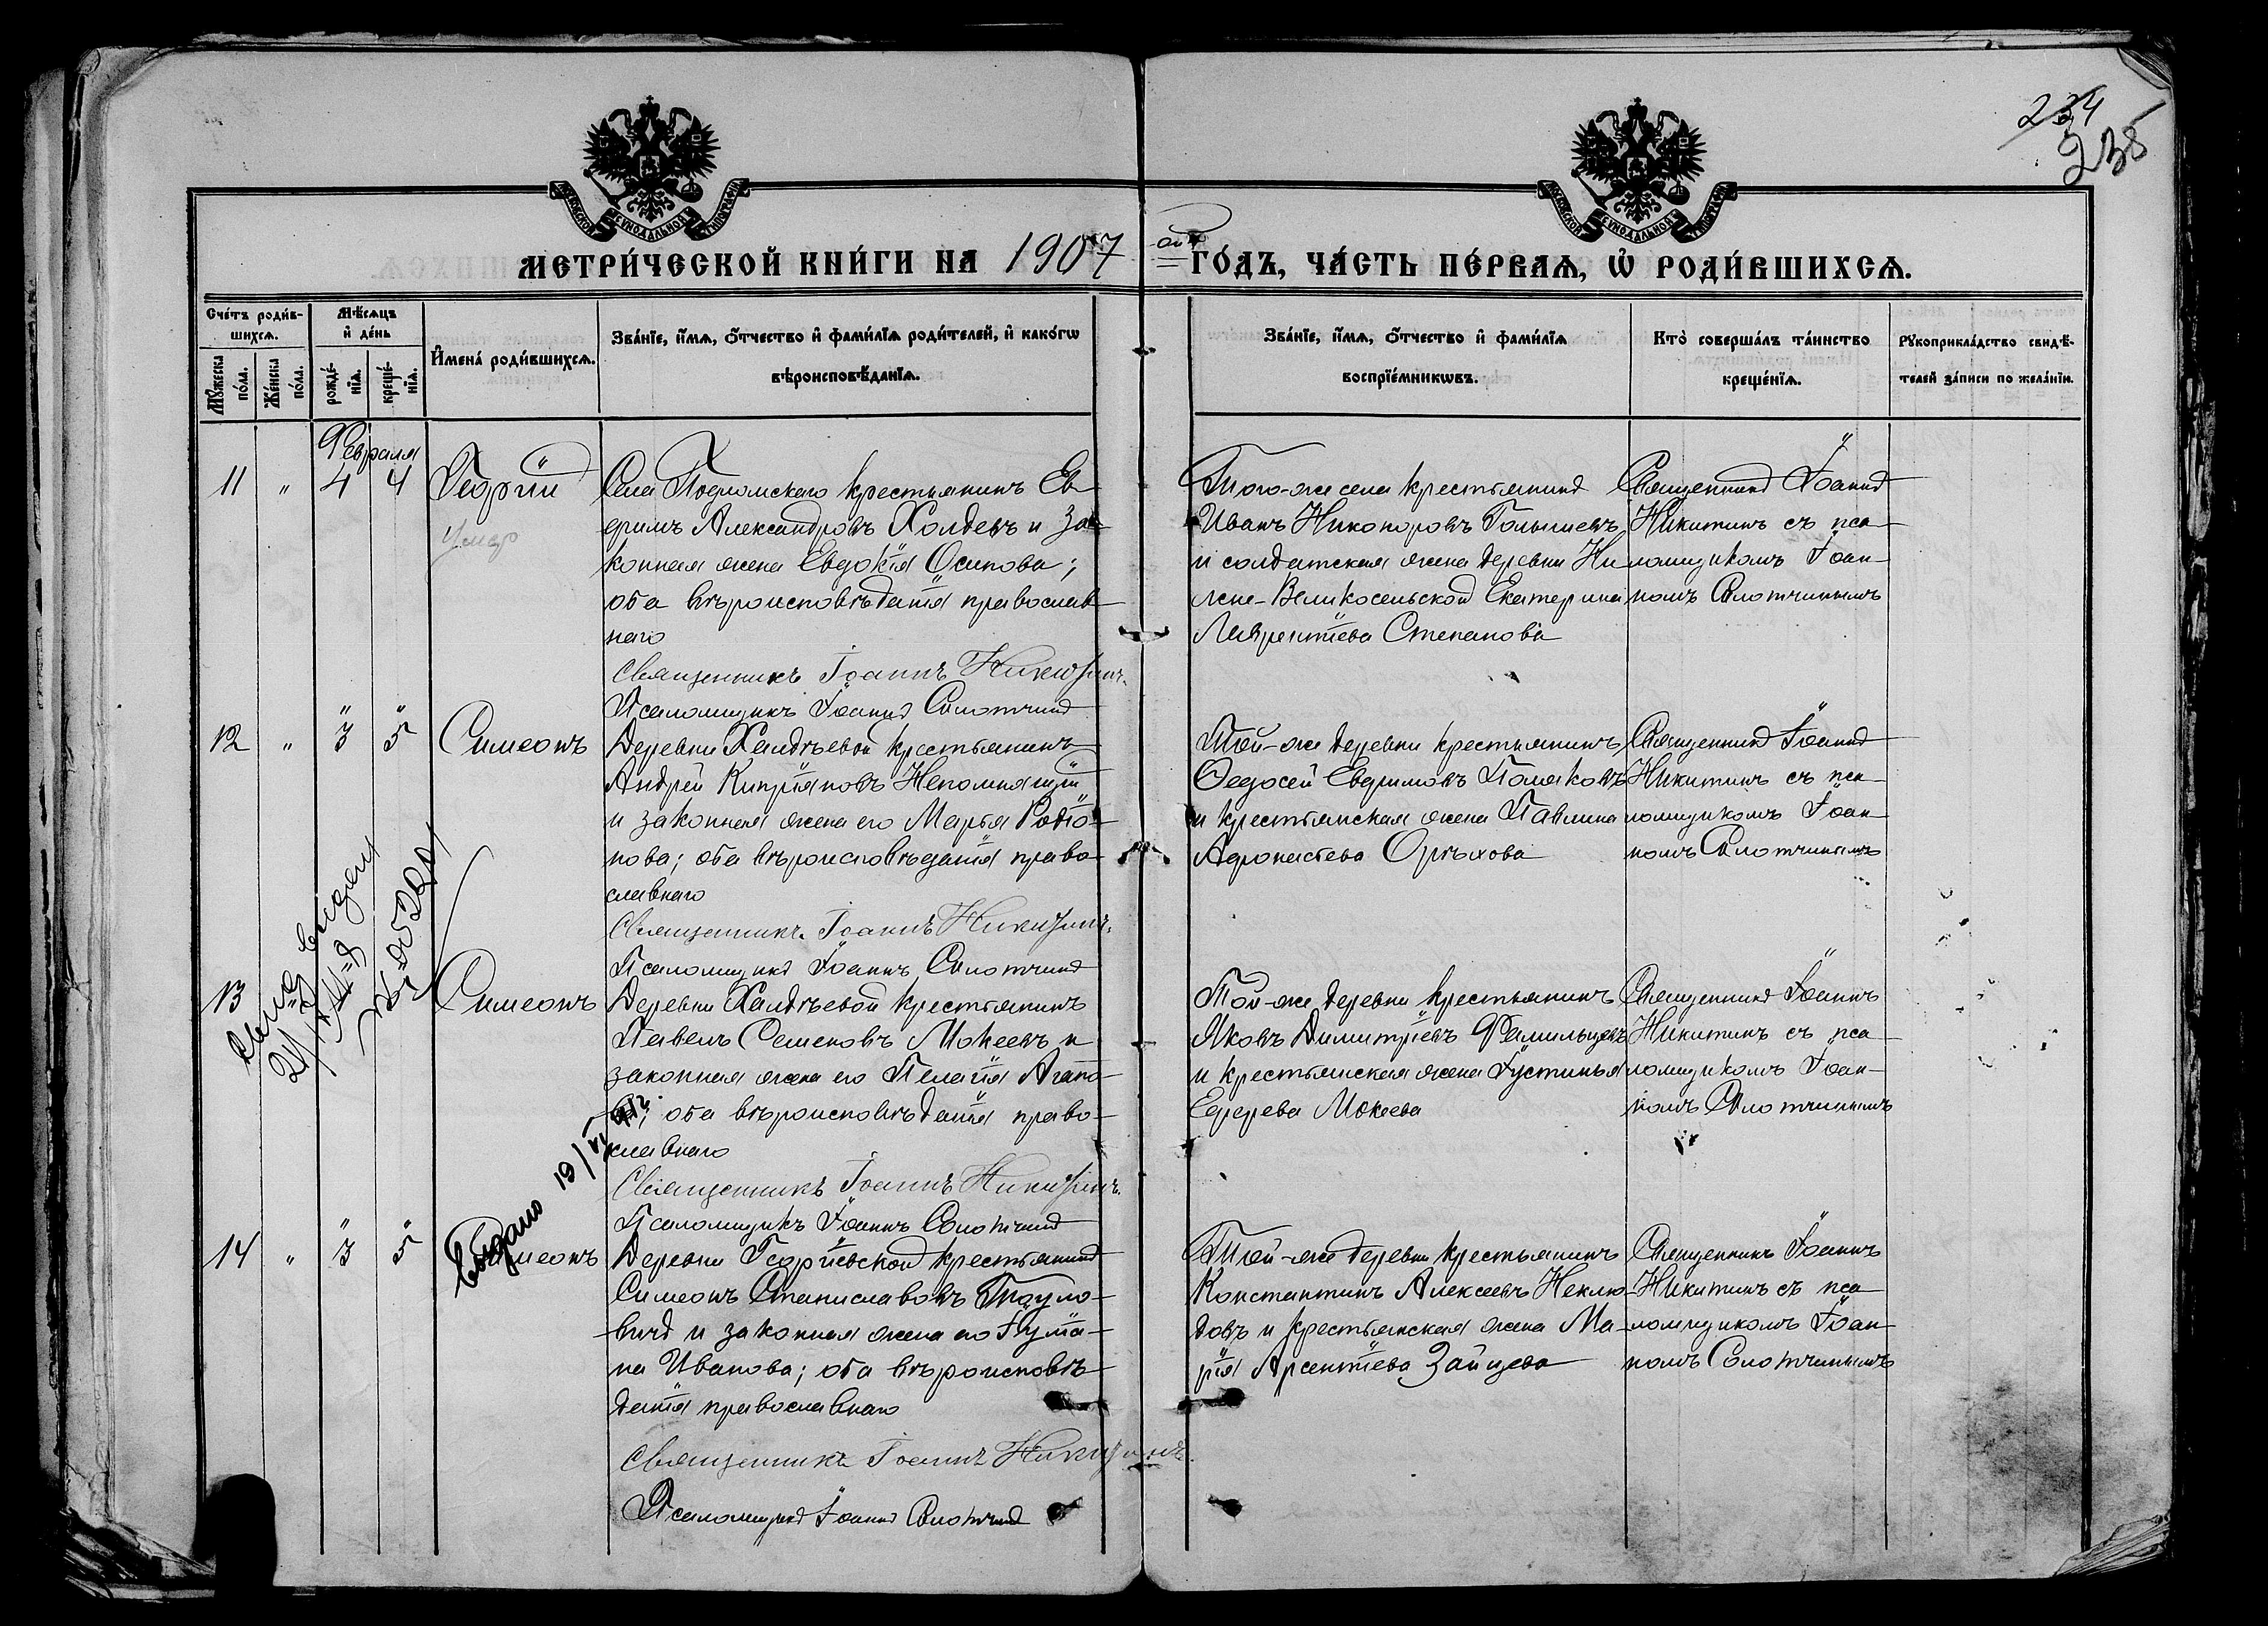 234
235
МЕТРИ́ЧЕСКОЙ КНИ́ГИ НА 1907 ой ГО́ДЪ, ЧА́СТЬ ПЕ́РВАѦ, Ѡ҆ РОДИ́ВШИХСѦ.
Сче́тъ роди́в-
шихсѧ.
Мꙋ́жеска по́ла.
Же́нска по́ла.
Мѣ́сѧцъ
и҆ де́нь
рожде́-
нїѧ.
креще́-
нїѧ.
И҆мена̀ роди́вшихсѧ.
Зва́нїе, и҆́мѧ, ѻ҆́тчество и҆ фами́лїѧ роди́телей, и҆ како́гѡ
вѣроисповѣ́данїѧ.
Зва́нїе, и҆́мѧ, ѻ҆́тчество и҆ фами́лїѧ
воспрїе́мникѡвъ.
Кто̀ соверша́лъ та́инство
креще́нїѧ.
Рꙋкоприкла́дство свидѣ́-
телей за́писи по жела́нїю.
Февраля
11 " 4 4 Георгій
Умер
Села Подломскаго крестьянинъ Ев-
фимъ Александровъ Холдевъ и за-
конная жена Евдокія Осипова;
оба вѣроисповѣданія православ-
наго
Священникъ Іоаннъ Никитинъ.
Псаломщикъ Іоаннъ Слотчинъ
Того-же села крестьянинъ
Иванъ Никоноровъ Голышевъ
и солдатская жена деревни Ни-
жне-Великосельской Екатерина
Лаврентіева Степанова
Священникъ Іоаннъ
Никитинъ съ пса-
ломщикомъ Іоан-
номъ Слотчинымъ
12 " 3 5 Симеонъ
Деревни Халдѣевой крестьянинъ
Андрей Кипріяновъ Непомнящій
и законная жена его Марья Родіо-
нова; оба вѣроисповѣданія право-
славнаго
Священникъ Іоаннъ Никитинъ.
Псаломщикъ Іоаннъ Слотчинъ
Той-же деревни крестьянинъ
Ѳедосей Евфимовъ Поляковъ
и крестьянская жена Павлина
Афонасьева Орѣхова
Священникъ Іоаннъ
Никитинъ съ пса-
ломщикомъ Іоан-
номъ Слотчинымъ
13 Симеонъ
Деревни Халдѣевой крестьянинъ
Павелъ Семеновъ Мокеевъ и
законная жена его Пелагія Агапо-
ва; оба вѣроисповѣданія право-
славнаго
Священникъ Іоаннъ Никитинъ.
Псаломщикъ Іоаннъ Слотчинъ
Той-же деревни крестьянинъ
Яковъ Димитріевъ Фамильцевъ
и крестьянская жена Іустинья
Егерева Мокеева
Священникъ Іоаннъ
Никитинъ съ пса-
ломщикомъ Іоан-
номъ Слотчинымъ
Выдано 19/VI
14 " 3 5 Симеонъ
Деревни Георгіевской крестьянинъ
Симеонъ Станиславовъ
вичъ и законная жена его Іуліа-
на Иванова; оба вѣроисповѣ-
данія православнаго
Священникъ Іоаннъ Никитинъ.
Псаломщикъ Іоаннъ Слотчинъ
Той-же деревни крестьянинъ
Константинъ Алексеевъ Неклю-
довъ и крестьянская жена Ма-
рія Арсентіева Зайцева
Священникъ Іоаннъ
Никитинъ съ пса-
ломщикомъ Іоан-
номъ Слотчинымъ